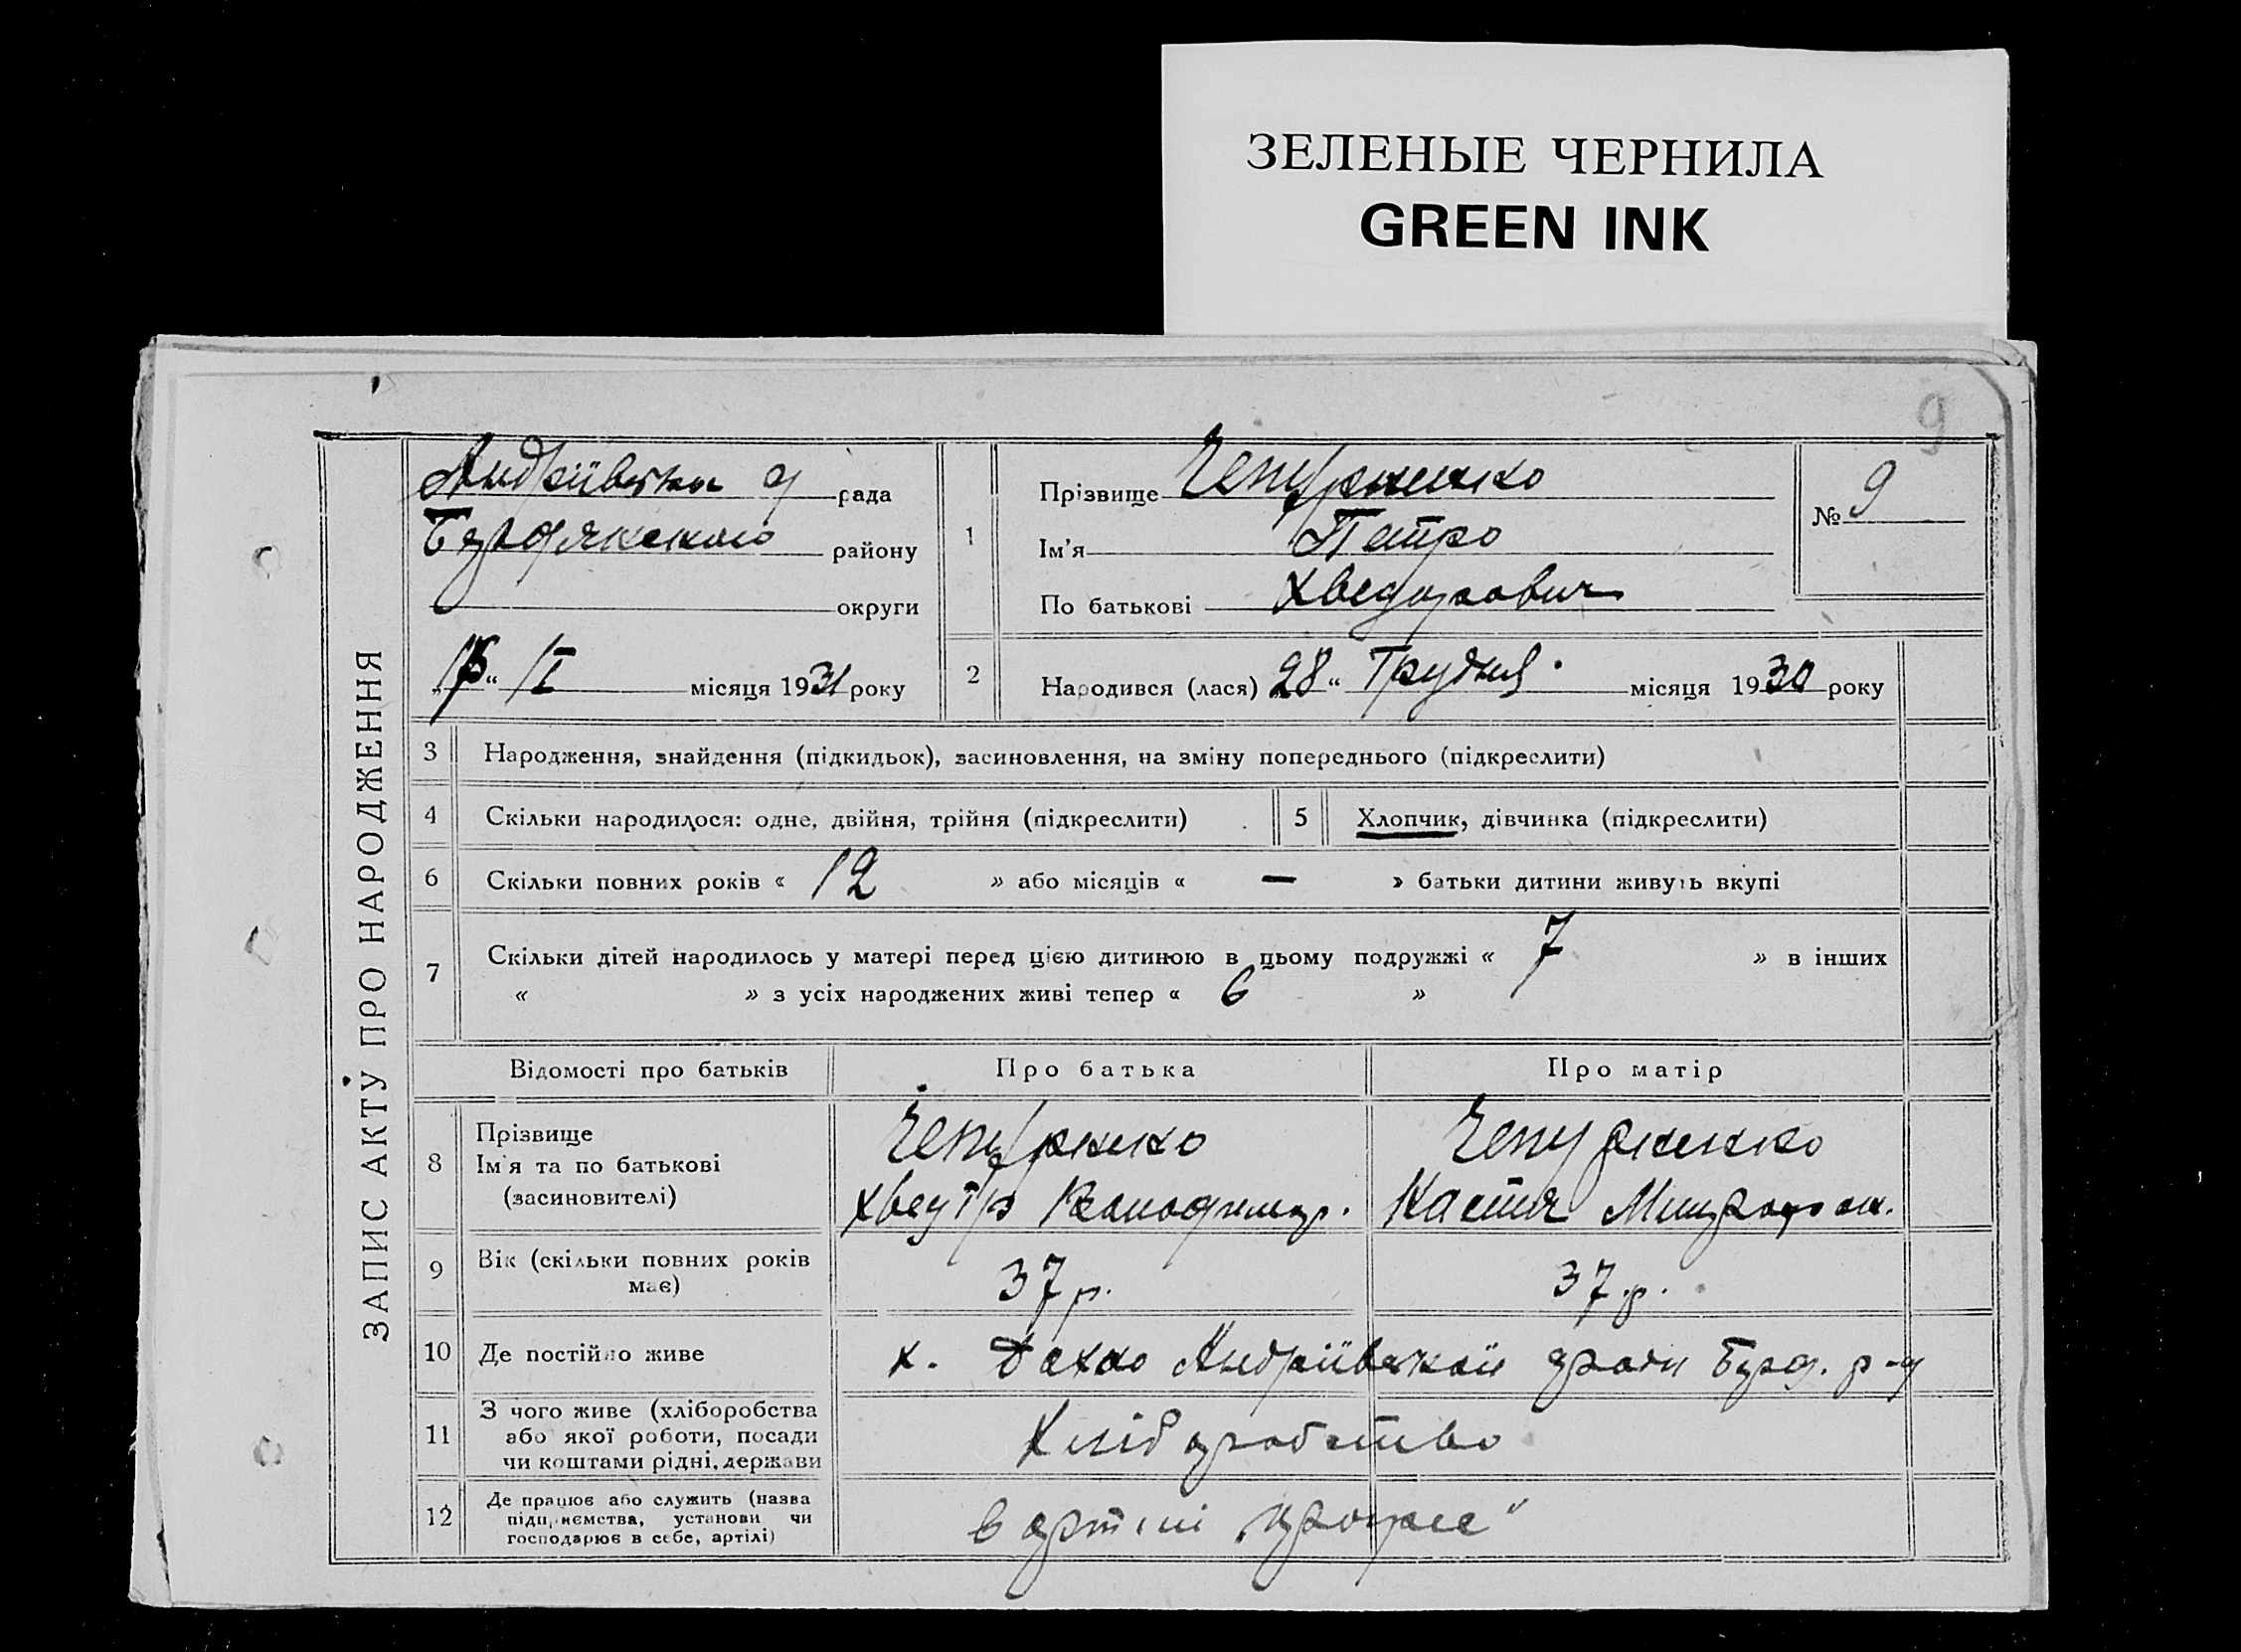 ЗЕЛЕНЫЕ ЧЕРНИЛА
GREEN INK
9
ЗАПИС АКТУ ПРО НАРОДЖЕННЯ
рада
району
округи
"/I місяця 1931 року
1
Прізвище Чепурненко
Ім'я Петро
По батькові Хведорович
№ 9
2
Народився (лася) 28 " Грудня місяця 1930 року
3 Народження, знайдення (підкидьок), засиновлення, на зміну попереднього (підкреслити)
4 Скільки народилося: одне, двійня, трійня (підкреслити)
5 Хлопчик, дівчинка (підкреслити)
6 Скільки повних років « 12 » або місяців « — » батьки дитини живуть вкупі
7 Скільки дітей народилось у матері перед цією дитиною в цьому подружжі « 7 » в інших
« » з усіх народжених живі тепер « 6 »
Відомості про батьків Про батька Про матір
8 Прізвище
Ім'я та по батькові
(засиновителі)
Чепурненко
Хведір Володимир.
Чепурненко
Настя
9 Вік (скільки повних років
має)
37 р.
37 р.
10 Де постійно живе
х. Андріївської ради р-у
11 З чого живе (хліборобства
або якої роботи, посади
чи коштами рідні, держави
Хліборобство
12 Де працює або служить (назва
підприємства, установи чи
господарює в себе, артілі)
в артілі